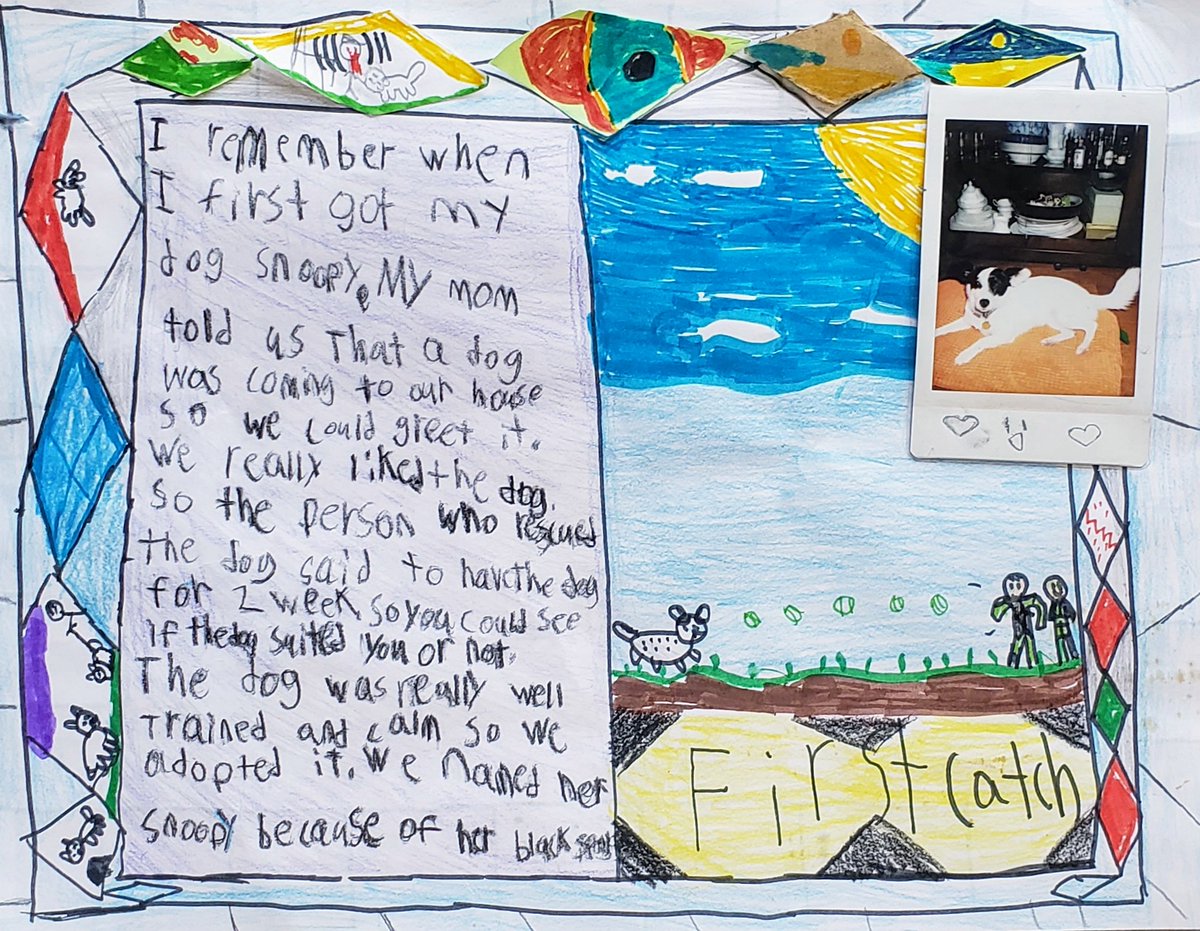 I remember when
I first got my
dog snoopy. My mom
told us That a dog
was coming to our house
so we could greet it.
We really liked the dog.
so the person who rescued
the dog said to have the dog
for 2 week so you could see
if the dog suited you or not.
The dog was really well
Trained and calm so we
adopted it. We named her
snoopy because of her black spots
First catch